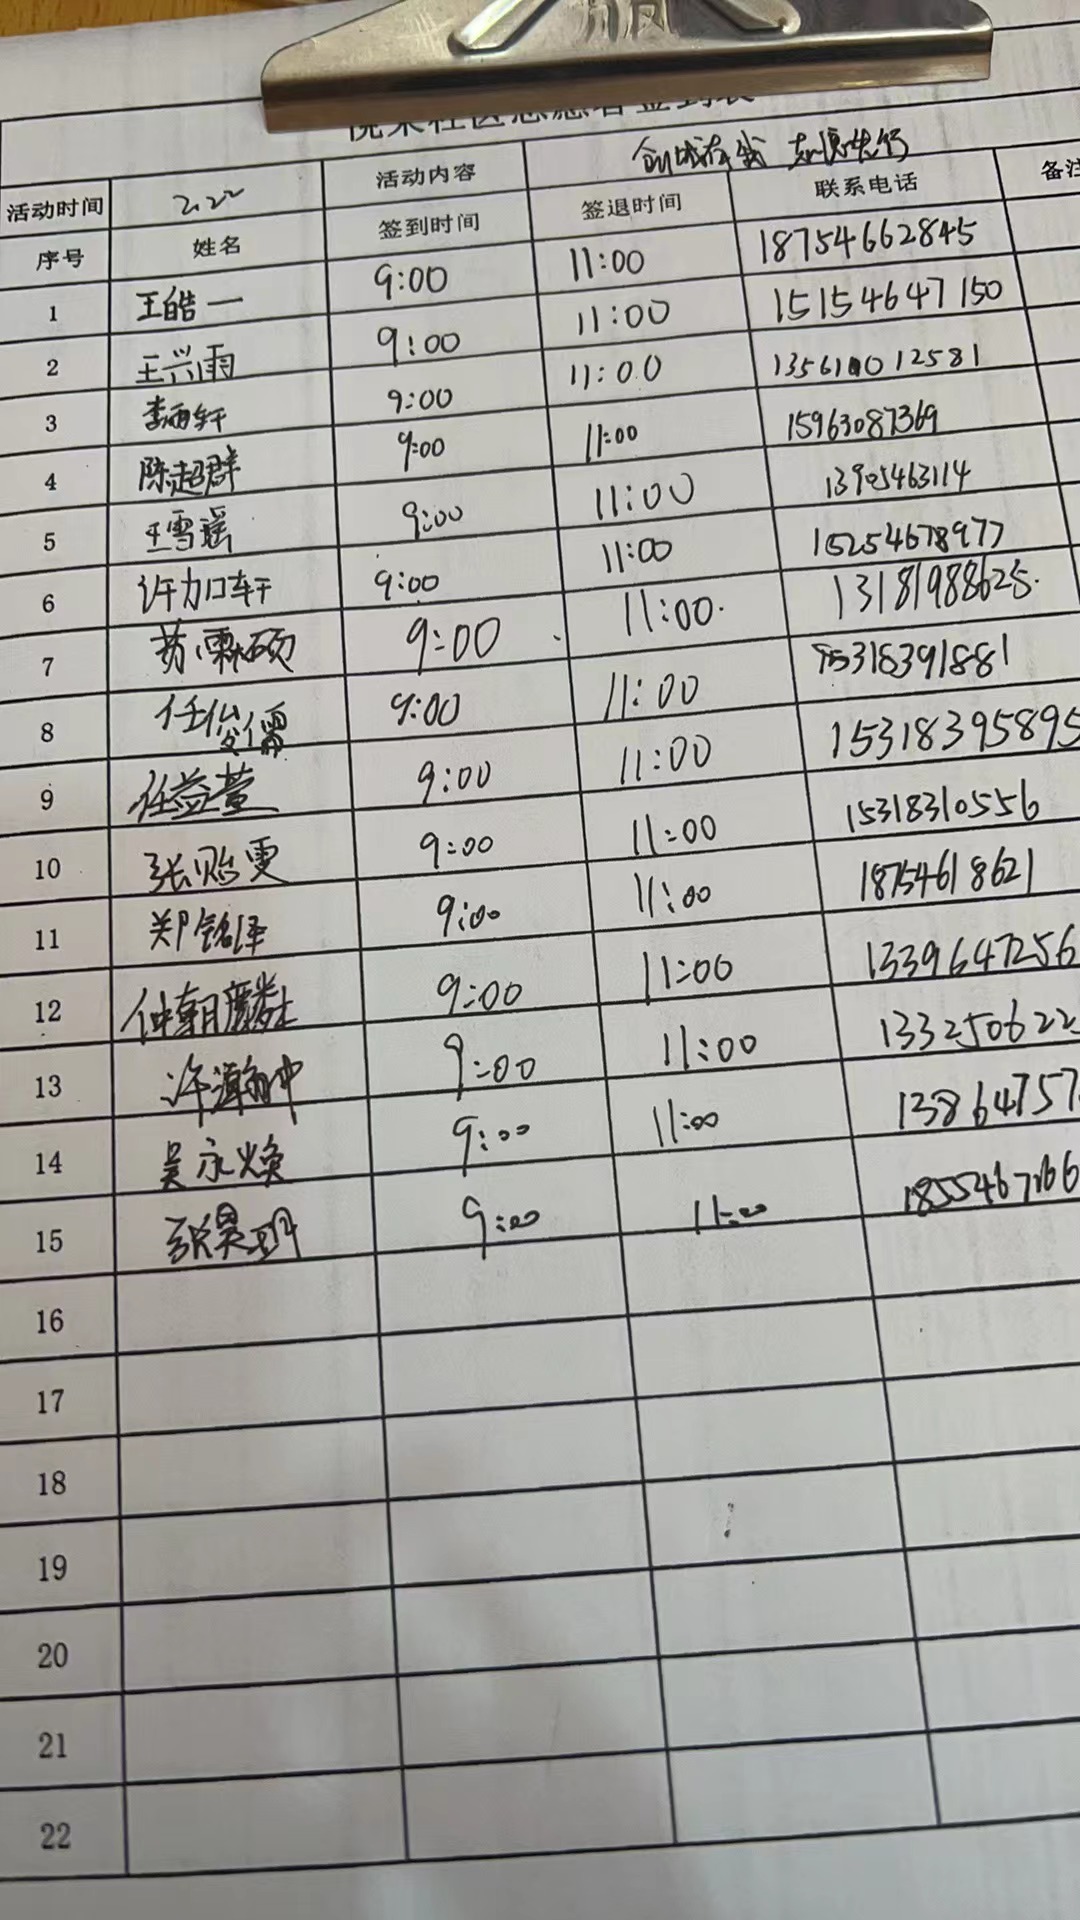 社区志愿者签到表
活动时间 2.22 活动内容 创城有我 志愿先行
序号 姓名 签到时间 签退时间 联系电话 备注
1 王皓一 9:00 11:00 18754662845
2 王兴雨 9:00 11:00 15154647150
3 李雨轩 9:00 11:00
4 陈超群 9:00 11:00 15963087369
5 王雪瑶 9:00 11:00 13905463114
6 许加轩 9:00 11:00 15254678977
7 苏霖硕 9:00 11:00 13181988625
8 任俊儒 9:00 11:00 15318391881
9 任益萱 9:00 11:00 15318395895
10 张贻雯 9:00 11:00 15318310556
11 郑铭泽 9:00 11:00 18754618621
12 仲朝麟 9:00 11:00 1339647256
13 许瀚中 9:00 11:00 133250622
14 吴永焕 9:00 11:00 13864757
15 张昊玥 9:00 11:00
16
17
18
19
20
21
22